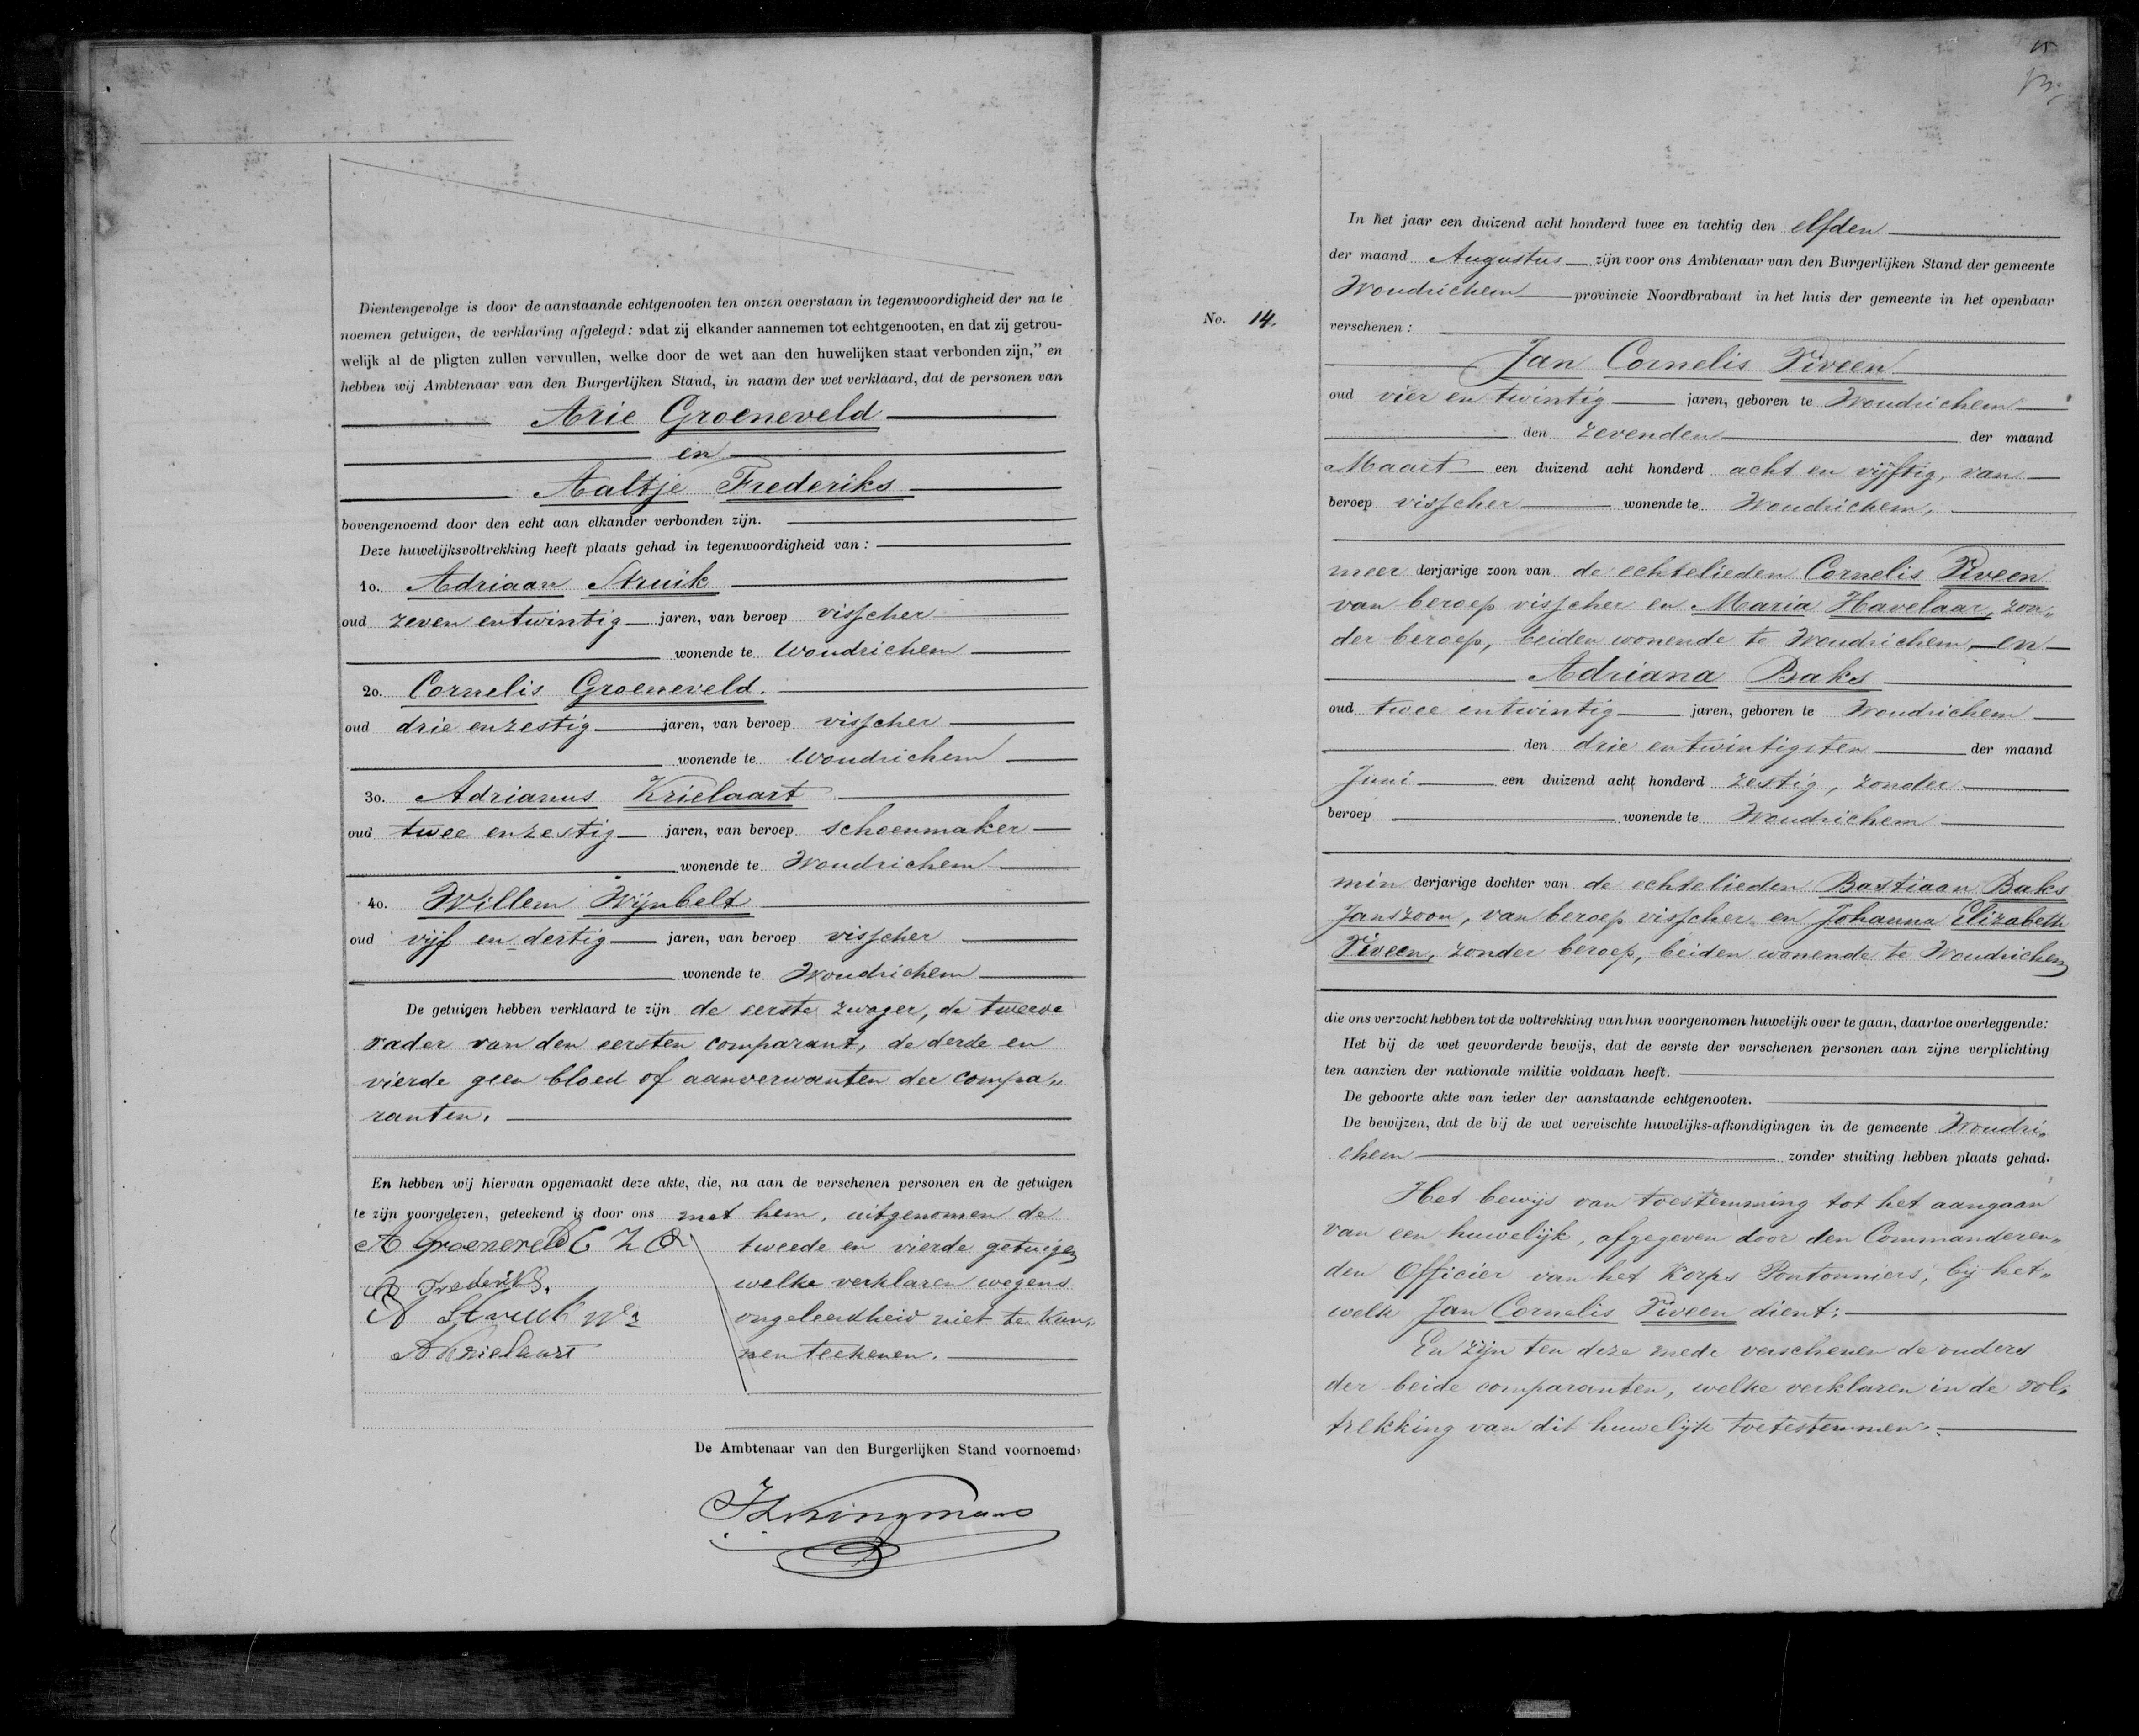 Dientengevolge is door de aanstaande echtgenooten ten onzen overstaan in tegenwoordigheid der na te
noemen getuigen, de verklaring afgelegd: »dat zij elkander aannemen tot echtgenooten, en dat zij getrou-
welijk al de pligten zullen vervullen, welke door de wet aan den huwelijken staat verbonden zijn,” en
hebben wij Ambtenaar van den Burgerlijken Stand, in naam der wet verklaard, dat de personen van
Arie Groeneveld
en
Aaltje Frederiks
bovengenoemd door den echt aan elkander verbonden zijn.
Deze huwelijksvoltrekking heeft plaats gehad in tegenwoordigheid van:
1o. Adriaan Struik
oud zeven en twintig jaren, van beroep visscher
wonende te Woudrichem
2o. Cornelis Groeneveld.
oud drie en zestig jaren, van beroep visscher
wonende te Woudrichem
3o. Adrianus Krielaart
oud twee en zestig jaren, van beroep schoenmaker
wonende te Woudrichem
4o. Willem Wijnbelt
oud vijf en dertig jaren, van beroep visscher
wonende te Woudrichem
De getuigen hebben verklaard te zijn de eerste zwager, de tweede
vader van den eersten comparant, de derde en
vierde geen bloed of aanverwanten der compa„
ranten.
En hebben wij hiervan opgemaakt deze akte, die, na aan de verschenen personen en de getuigen
te zijn voorgelezen, geteekend is door ons met hem, uitgenomen de
tweede en vierde getuigen
welke verklaren wegens
ongeleerdheid niet te kun„
nen teekenen.
A Groeneveld C Z
A Frederiks.
A Struik
A Krielaart
De Ambtenaar van den Burgerlijken Stand voornoemd,
15
No. 14.
In het jaar een duizend acht honderd twee en tachtig den elfden
der maand Augustus zijn voor ons Ambtenaar van den Burgerlijken Stand der gemeente
Woudrichem provincie Noordbrabant in het huis der gemeente in het openbaar
verschenen:
Jan Cornelis Viveen
oud vier en twintig jaren, geboren te Woudrichem
den zevenden der maand
Maart een duizend acht honderd acht en vijftig, van
beroep visscher wonende te Woudrichem,
meer derjarige zoon van de echtelieden Cornelis Viveen
van beroep visscher en Maria Havelaar, zon„
der beroep, beiden wonende te Woudrichem, en
Adriana Baks
oud twee en twintig jaren, geboren te Woudrichem
den drie en twintigsten der maand
Juni een duizend acht honderd zestig, zonder
beroep wonende te Woudrichem
min derjarige dochter van de echtelieden Bastiaan Baks
Janszoon, van beroep visscher en Johanna Elizabeth
Viveen, zonder beroep, beiden wonende te Woudrichem
die ons verzocht hebben tot de voltrekking van hun voorgenomen huwelijk over te gaan, daartoe overleggende:
Het bij de wet gevorderde bewijs, dat de eerste der verschenen personen aan zijne verplichting
ten aanzien der nationale militie voldaan heeft.
De geboorte akte van ieder der aanstaande echtgenooten.
De bewijzen, dat de bij de wet vereischte huwelijks-afkondigingen in de gemeente Woudri„
chem zonder stuiting hebben plaats gehad.
Het bewijs van toestemming tot het aangaan
van een huwelijk, afgegeven door den Commanderen„
den Officier van het Korps Pontonniers, bij het„
welk Jan Cornelis Viveen dient;
En zijn ten deze mede verschenen de ouders
der beide comparanten, welke verklaren in de vol„
trekking van dit huwelijk toetestemmen.